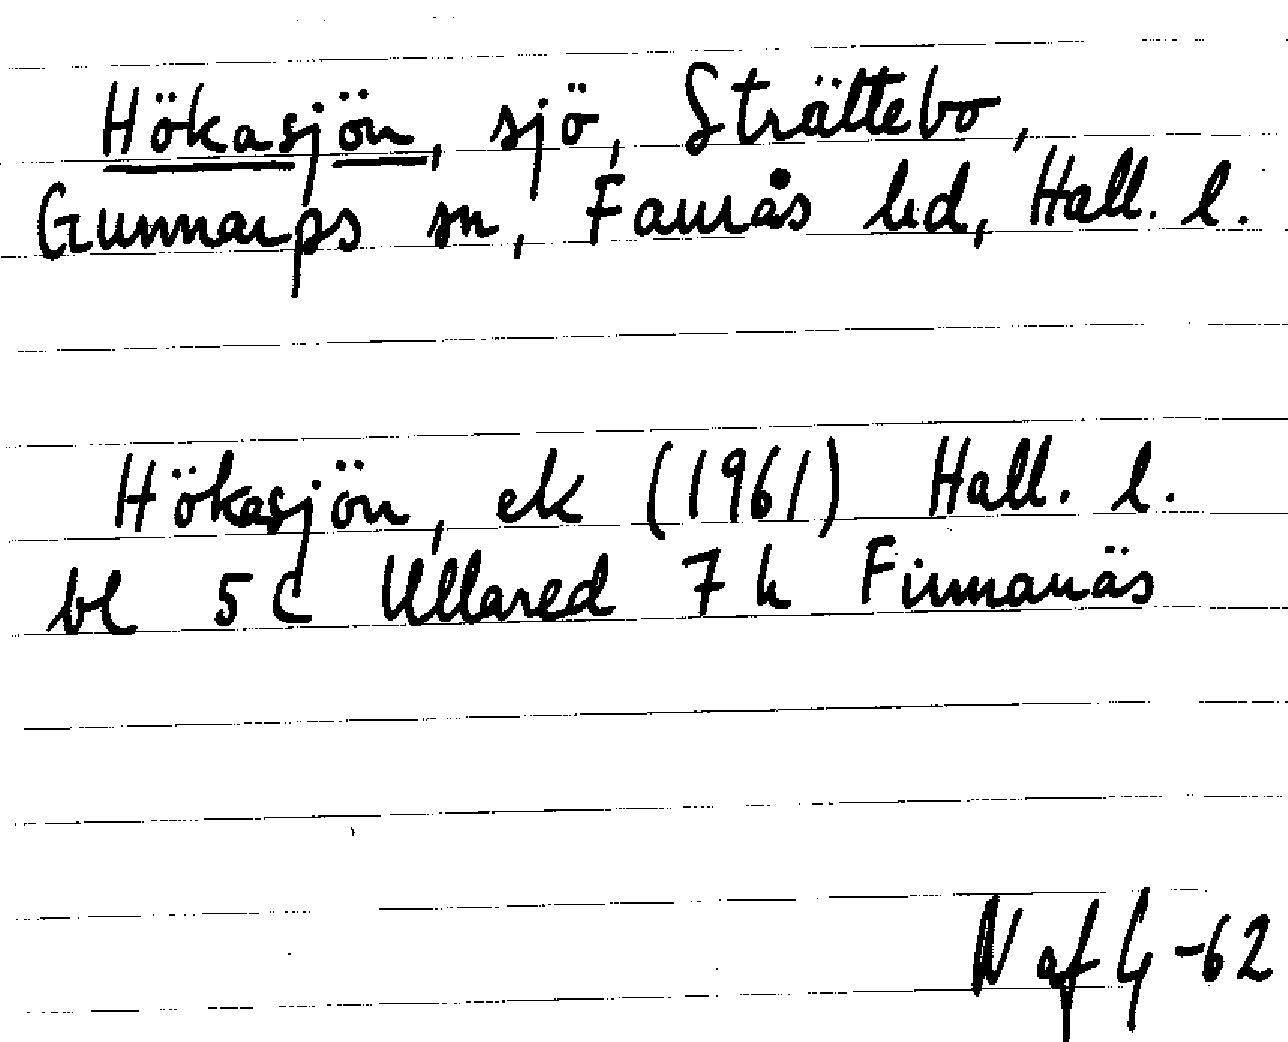 Hökasjön, sjö, Strättebo,
Gunnarps sn, Faurås hd, Hall. l.
Hökasjön, ek (1961) Hall. l.
bl 5 C Ullared 7 h Finnanäs
N af G -62